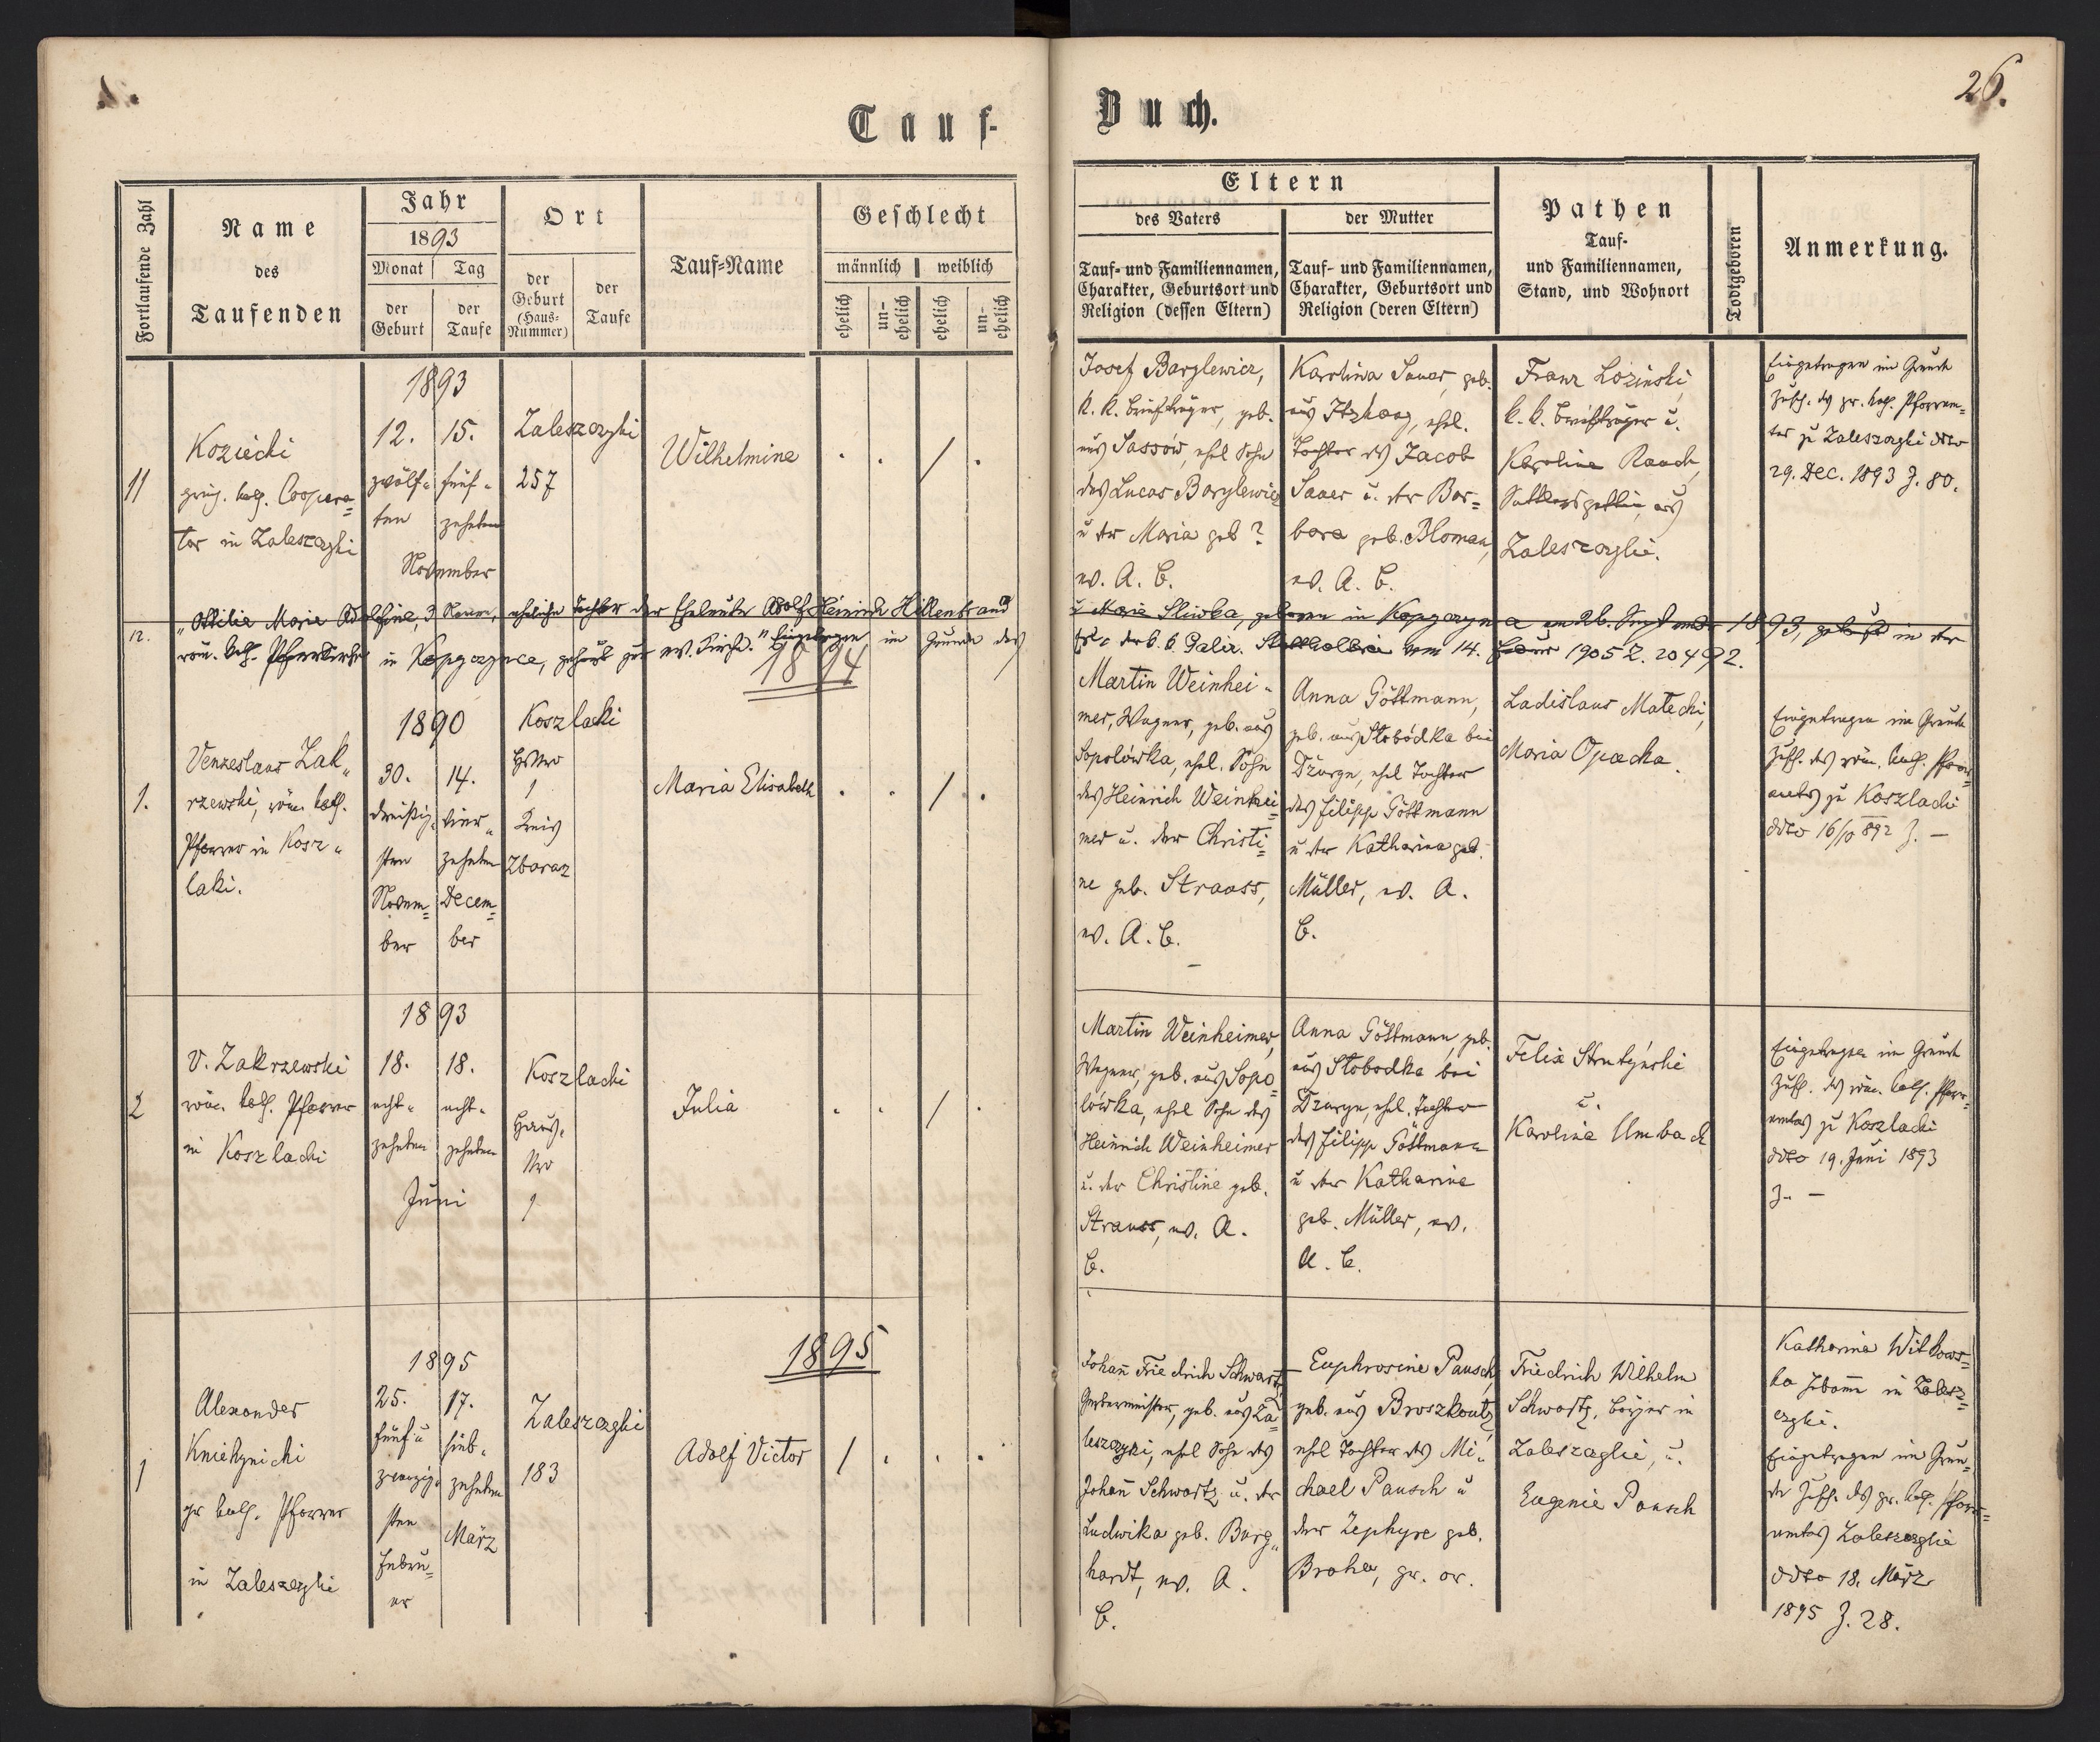 26.
Tauf-
Buch.
Fortlaufende Zahl
Name
des
Taufenden
Jahr
1893
Monat
Tag
der
Geburt
der
Taufe
Ort
der
Geburt
(Haus-
Nummer)
der
Taufe
Tauf=Name
Geschlecht
männlich
weiblich
ehelich
un-
ehelich
ehelich
un-
ehelich
Eltern
des Vaters
der Mutter
Tauf- und Familiennamen,
Charakter, Geburtsort und
Religion (dessen Eltern)
Tauf- und Familiennamen,
Charakter, Geburtsort und
Religion (deren Eltern)
Pathen
Tauf-
und Familiennamen,
Stand, und Wohnort
Todtgeboren
Anmerkung.
11
Koziecki
griech. kath. Coopera=
tor in Zaleszczyki
1893
12.
zwölf-
ten
15.
fünf-
zehnten
November
Zaleszczyki
257
Wilhelmine
. . / .
Josef Barylewicz,
k. k. Briefträger, geb.
aus Sassów, ehel Sohn
des Lucas Barylewicz
u der Maria geb ?
ev. A. B.
Karolina Sauer, geb.
aus Itzkany, ehel.
Tochter des Jacob
Sauer u. der Bar=
bara geb. Bloman,
ev. A. B.
Franz Lozinski,
k. k. Briefträger u.
Karolina Rauch,
Sattlersgattin, aus
Zaleszczyki.
Eingetragen im Grunde
Zusch. des gr. kath. Pfarram=
tes zu Zaleszczyki ddto
29. Dec. 1893 Z. 80.
12.
"Ottilie Marie Adolfine, 3 Namen, eheliche Tochter der Eheleute Adolf Heinrich Hillenbrand
u Marie Sliwka, geboren in Kopyczynce am 26. September 1893, getauft in der
röm. kath. Pfarrkirche in Kopyczynce, gehört zur ev. Kirche." Eingetragen im Grunde des
Erl. der k. k. Galiz. Statthalterei vom 14. 1905 Z. 20492.
1894
1.
Venzeslaus Zak„
rzewski, röm. kath.
Pfarrer in Kosz„
laki.
1890
30.
dreißig-
sten
Novem=
ber
14.
vier„
zehnten
Decem=
ber
Koszlaki
HsNro
1
Kreis
Zbaraz
Maria Elisabeth
. . / .
Martin Weinhei-
mer, Wagner, geb. aus
Sopolówka, ehel. Sohn
des Heinrich Weinhei=
mer u. der Christi=
ne geb. Strauss,
ev. A. B.
Anna Göttmann,
geb. aus Slobódka bei
Dżuryn, ehel Tochter
des Filipp Göttmann
u der Katharina geb.
Müller, ev. A.
B.
Ladislaus Matecki,
Maria Opacka.
Eingetragen im Grunde
Zusch. des röm. kath. Pfarr=
amtes zu Koszlacki
ddto 16/10 892 Z. —
2
V. Zakrzewski
röm. kath. Pfarrer
in Koszlacki
1893
18.
acht-
zehnten
18.
acht-
zehnten
Juni
Koszlacki
Haus-
Nro
1
Julia
. . / .
Martin Weinheimer,
Wagner, geb. aus Sopo=
lówka, ehel Sohn des
Heinrich Weinheimer
u. der Christine geb.
Strauss, ev. A.
B.
Anna Göttmann, geb.
aus Slobodka bei
Dżuryn, ehel. Tochter
des Filipp Göttmann
u der Katharine
geb. Müller, ev.
A. B.
Felix Strutyński
u.
Karolina Umbach
Eingetragen im Grunde
Zusch. des röm. kath. Pfarr=
amtes zu Koszlacki
ddto 19. Juni 1893
Z. —
1895
1
Alexander
Kniehynicki
gr kath. Pfarrer
in Zaleszczyki
1895
25.
fünf u
zwanzig-
sten
Febru=
ar
17.
sieb-
zehnten
März
Zaleszczyki
183
Adolf Victor
/ . . .
Johañ Friedrich Schwartz,
Gerbermeister, geb. aus Za=
leszczyki, ehel Sohn des
Johañ Schwartz u. der
Ludwika geb. Burg„
hardt, ev. A.
B.
Euphrosine Pausch,
geb. aus Broszkoutz,
ehel Tochter des Mi-
chael Pausch u
der Zephyre geb.
Braha, gr. or.
Friedrich Wilhelm
Schwartz, Bürger in
Zaleszczyki, u.
Eugenie Pausch
Katharina Witkows=
ka Hebamme in Zalesz=
czyki.
Eingetragen im Grun=
de Zusch. des gr. kath. Pfarr=
amtes Zaleszczyki
ddto 18. März
1895 Z. 28.